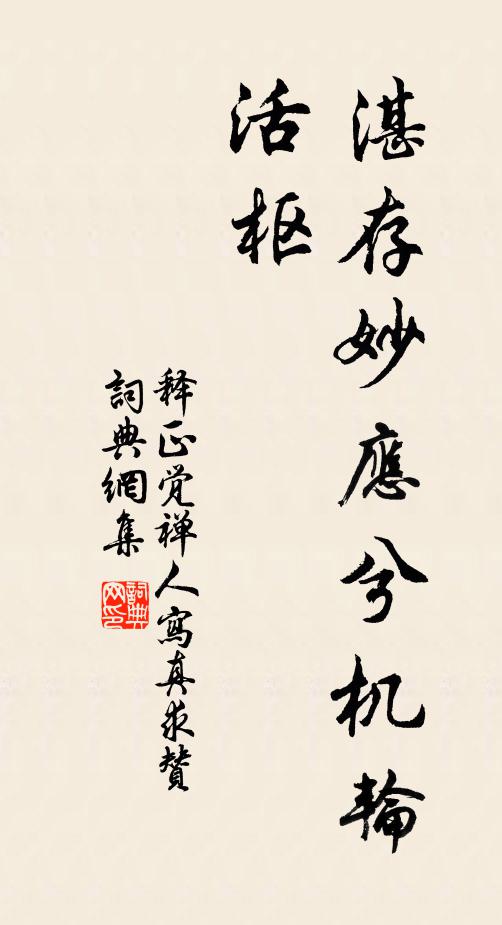 湛存妙應兮机輪
活枢
释正觉禅人寫真求贊
詞典網集
詞典网印